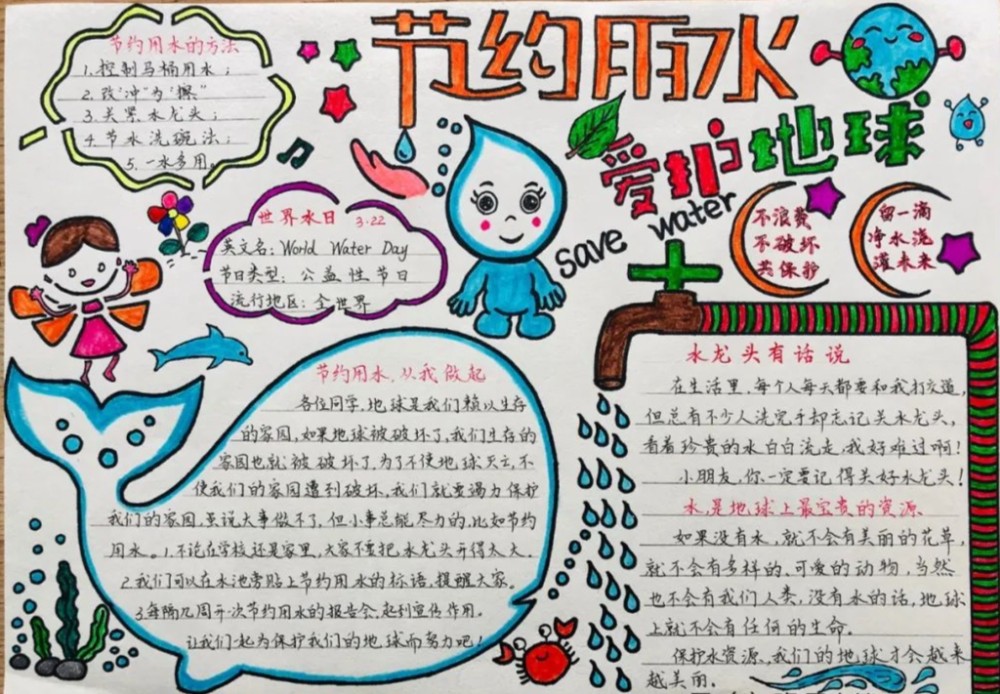 节约用水
爱护地球
save water
节约用水的方法
1.控制马桶用水；
2.改"冲"为"擦"
3.关紧水龙头；
4.节水洗碗法；
5.一水多用。
世界水日 3.22
英文名：World Water Day
节日类型：公益性节日
流行地区：全世界
不浪费
不破坏
共保护
留一滴
净水浇
灌未来
节约用水，从我做起
各位同学，地球是我们赖以生存
的家园，如果地球被破坏了，我们生存的
家园也就被破坏了，为了不使地球灭亡，不
使我们的家园遭到破坏，我们就要竭力保护
我们的家园，虽说大事做不了，但小事总能尽力的，比如节约
用水。1.不论在学校还是家里，大家不要把水龙头开得太大。
2.我们可以在水池旁贴上节约用水的标语，提醒大家。
3.每隔几周开次节约用水的报告会，起到宣传作用。
让我们一起为保护我们的地球而努力吧！
水龙头有话说
在生活里，每个人每天都要和我打交道，
但总有不少人洗完手却忘记关水龙头，
看着珍贵的水白白流走，我好难过啊！
小朋友，你一定要记得关好水龙头！
水，是地球上最宝贵的资源
如果没有水，就不会有美丽的花草，
就不会有多样的、可爱的动物，当然
也不会有我们人类，没有水的话，地球
上就不会有任何的生命。
保护水资源，我们的地球才会越来
越美丽。